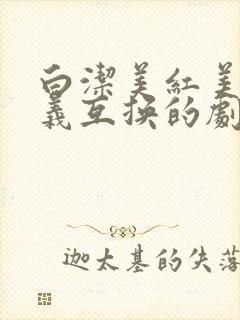 白潔美紅美
義互換的劇
迦太基的失落